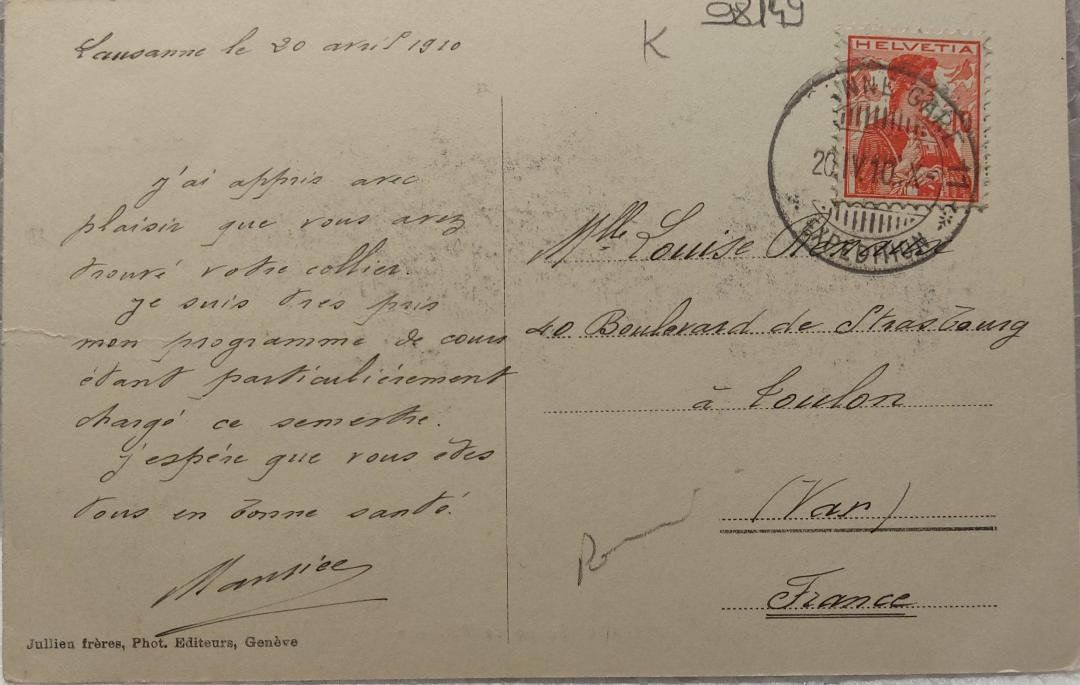 Lausanne le 20 avril 1910
K
98149
HELVETIA
NNE GARE
20 IV 10 X
17
EXPEDITION
j'ai appris avec
plaisir que vous avez
trouvé votre collier.
je suis tres pris
mon programme de cours
étant particulièrement
chargé ce semestre.
j'espère que vous êtes
tous en bonne santé.
Maurice
Mlle Louise
40 Boulevard de Strasbourg
à Toulon
(Var)
France
Jullien frères, Phot. Editeurs, Genève